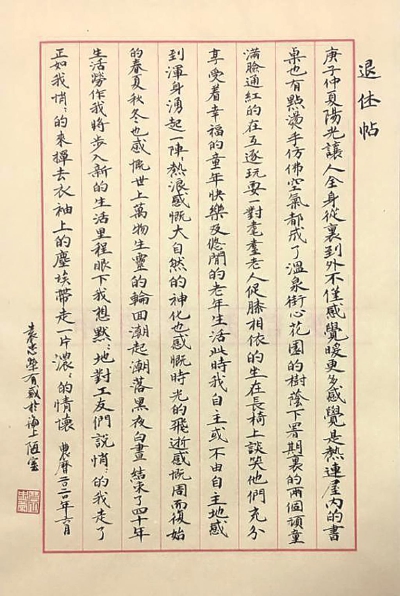 退休帖
庚子仲夏陽光讓人全身從裏到外不僅感覺暖更多感覺是熱連屋内的書
桌也有點燙手仿佛空氣都成了溫泉街心花園的樹蔭下署期裏的兩個頑童
滿臉通紅的在互逐玩耍一對耄耋老人促膝相依的坐在長椅上談笑他們充分
享受着幸福的童年快樂及悠閒的老年生活此時我自主或不由自主地感
到渾身湧起一陣熱浪感慨大自然的神化也感慨時光的飛逝感慨周而復始
的春夏秋冬也感慨世上萬物生靈的輪回潮起潮落黑夜白晝結束了四十年
生活勞作我將步入新的生活里程眼下我想默:地對工友們說悄:的我走了
正如我悄:的來揮去衣袖上的塵埃帶走一片濃:的情懷 農曆二〇二〇年六月
袁志榮有感於海上陋室